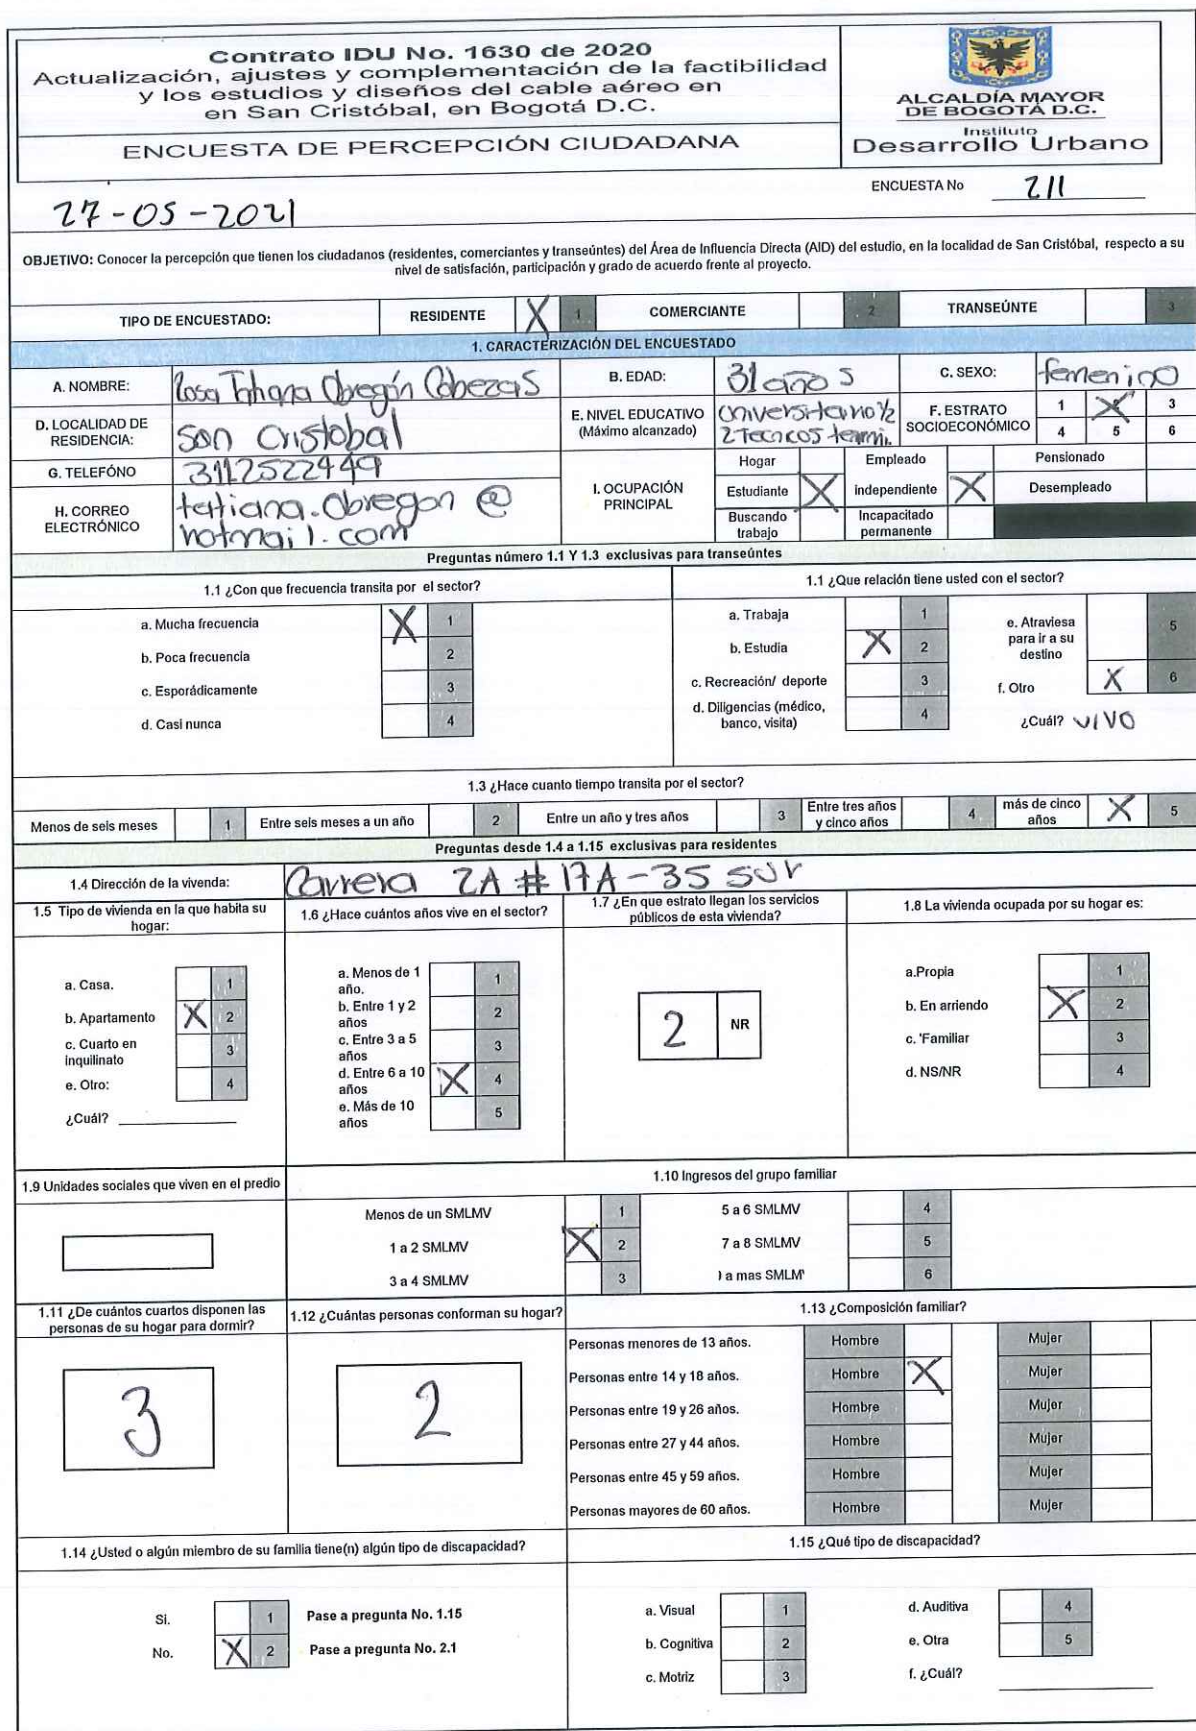 Contrato IDU No. 1630 de 2020
Actualización, ajustes y complementación de la factibilidad
y los estudios y diseños del cable aéreo en
en San Cristóbal, en Bogotá D.C.
ENCUESTA DE PERCEPCIÓN CIUDADANA
ALCALDÍA MAYOR
DE BOGOTÁ D.C.
Instituto
Desarrollo Urbano
ENCUESTA No 211
27-05-2021
OBJETIVO: Conocer la percepción que tienen los ciudadanos (residentes, comerciantes y transeúntes) del Área de Influencia Directa (AID) del estudio, en la localidad de San Cristóbal, respecto a su
nivel de satisfacción, participación y grado de acuerdo frente al proyecto.
TIPO DE ENCUESTADO: RESIDENTE X 1 COMERCIANTE 2 TRANSEÚNTE 3
1. CARACTERIZACIÓN DEL ENCUESTADO
A. NOMBRE: Rosa Tatiana Obregón Cabezas B. EDAD: 31 años C. SEXO: femenino
D. LOCALIDAD DE RESIDENCIA: San Cristobal E. NIVEL EDUCATIVO (Máximo alcanzado) Universitario 1/2 2 Tecnicos termi. F. ESTRATO SOCIOECONÓMICO 1 X 3 4 5 6
G. TELEFÓNO 3112522449
H. CORREO ELECTRÓNICO tatiana.obregon @ hotmail.com
I. OCUPACIÓN PRINCIPAL
Hogar Empleado Pensionado
Estudiante X independiente X Desempleado
Buscando trabajo Incapacitado permanente
Preguntas número 1.1 Y 1.3 exclusivas para transeúntes
1.1 ¿Con que frecuencia transita por el sector?
a. Mucha frecuencia X 1
b. Poca frecuencia 2
c. Esporádicamente 3
d. Casi nunca 4
1.1 ¿Que relación tiene usted con el sector?
a. Trabaja 1
b. Estudia X 2
c. Recreación/ deporte 3
d. Diligencias (médico, banco, visita) 4
e. Atraviesa para ir a su destino 5
f. Otro X 6
¿Cuál? VIVO
1.3 ¿Hace cuanto tiempo transita por el sector?
Menos de seis meses 1 Entre seis meses a un año 2 Entre un año y tres años 3 Entre tres años y cinco años 4 más de cinco años X 5
Preguntas desde 1.4 a 1.15 exclusivas para residentes
1.4 Dirección de la vivenda: Carrera 2A # 17A-35 sur
1.5 Tipo de vivienda en la que habita su hogar:
a. Casa. 1
b. Apartamento X 2
c. Cuarto en inquilinato 3
e. Otro: 4
¿Cuál?
1.6 ¿Hace cuántos años vive en el sector?
a. Menos de 1 año. 1
b. Entre 1 y 2 años 2
c. Entre 3 a 5 años 3
d. Entre 6 a 10 años X 4
e. Más de 10 años 5
1.7 ¿En que estrato llegan los servicios públicos de esta vivienda?
2 NR
1.8 La vivienda ocupada por su hogar es:
a.Propia 1
b. En arriendo X 2
c. 'Familiar 3
d. NS/NR 4
1.9 Unidades sociales que viven en el predio
1.10 Ingresos del grupo familiar
Menos de un SMLMV 1 5 a 6 SMLMV 4
1 a 2 SMLMV X 2 7 a 8 SMLMV 5
3 a 4 SMLMV 3 a mas SMLM 6
1.11 ¿De cuántos cuartos disponen las personas de su hogar para dormir?
3
1.12 ¿Cuántas personas conforman su hogar?
2
1.13 ¿Composición familiar?
Personas menores de 13 años. Hombre Mujer
Personas entre 14 y 18 años. Hombre X Mujer
Personas entre 19 y 26 años. Hombre Mujer
Personas entre 27 y 44 años. Hombre Mujer
Personas entre 45 y 59 años. Hombre Mujer
Personas mayores de 60 años. Hombre Mujer
1.14 ¿Usted o algún miembro de su familia tiene(n) algún tipo de discapacidad?
Si. 1 Pase a pregunta No. 1.15
No. X 2 Pase a pregunta No. 2.1
1.15 ¿Qué tipo de discapacidad?
a. Visual 1 d. Auditiva 4
b. Cognitiva 2 e. Otra 5
c. Motriz 3 f. ¿Cuál?